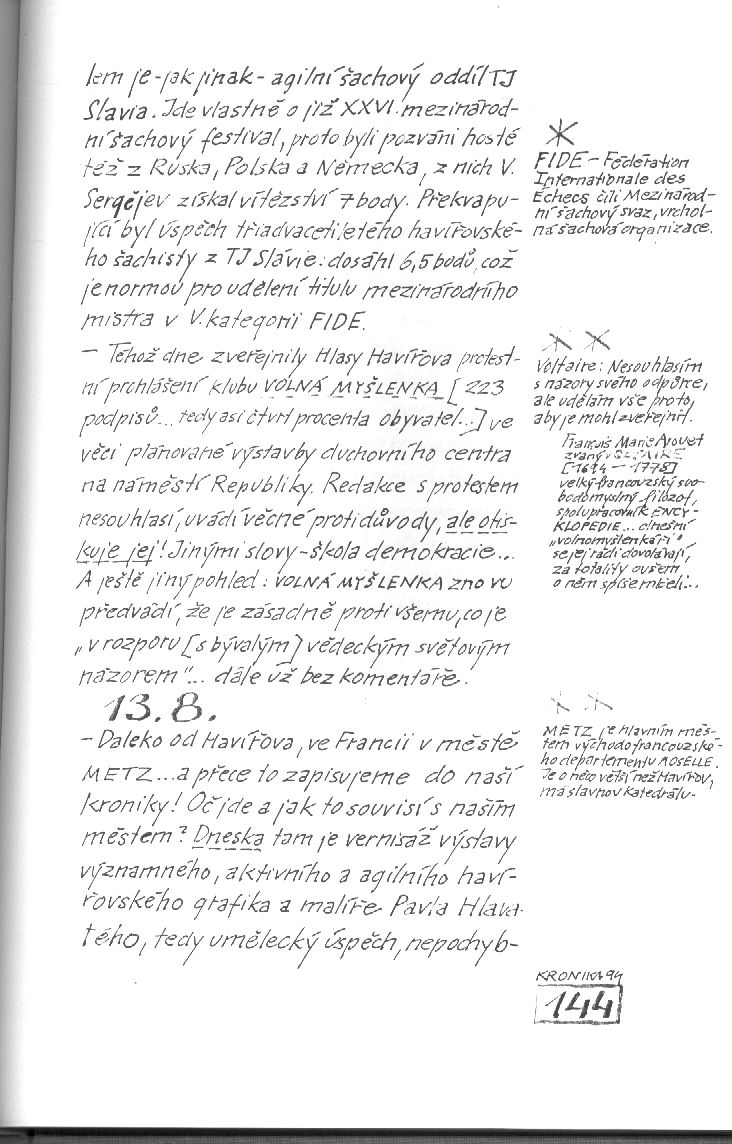 lem je - jak jinak - agilní šachový oddíl TJ
Slavia. Jde vlastně o již XXVI. mezinárod-
ní šachový festival, proto byli pozváni hosté
též z Ruska, Polska a Německa, z nich V.
Sergějev získal vítězství 7 body. Překvapu-
jící byl úspěch třiadvacetiletého havířovské-
ho šachisty z TJ Slávie: dosáhl 6,5 bodů, což
je normou pro udělení titulu mezinárodního
mistra v V. kategorii FIDE.
– Téhož dne zveřejnily Hlasy Havířova protest-
ní prohlášení klubu VOLNÁ MYŠLENKA [223
podpisů... tedy asi čtvrt procenta obyvatel...] ve
věci plánované výstavby duchovního centra
na náměstí Republiky. Redakce s protestem
nesouhlasí, uvádí věcné protidůvody, ale otis-
kuje jej! Jinými slovy - škola demokracie...
A ještě jiný pohled: VOLNÁ MYŠLENKA znovu
předvádí, že je zásadně proti všemu, co je
„v rozporu [s bývalým] vědeckým světovým
názorem"... dále už bez komentáře.
13.8.
– Daleko od Havířova, ve Francii v městě
METZ... a přece to zapisujeme do naší
kroniky! Oč jde a jak to souvisí s naším
městem? Dneska tam je vernisáž výstavy
významného, aktivního a agilního haví-
řovského grafika a malíře Pavla Hlava-
tého, tedy umělecký úspěch, nepochyb-
*
FIDE – Féderation
Internationale des
Échecs čili Mezinárod-
ní šachový svaz, vrchol-
ná šachová organizace.
* *
Voltaire: Nesouhlasím
s názory svého odpůrce,
ale udělám vše proto,
aby je mohl zveřejnit.
François Marie Arouet
zvaný VOLTAIRE
[1694 – 1778]
velký francouzský svo-
bodomyslný filozof,
spolupracovník ENCY-
KLOPEDIE... dnešní
„volnomyšlenkáři"
se jej rádi dovolávají,
za totality ovšem
o něm spíše mlčeli...
* *
METZ je hlavním měs-
tem východofrancouzské-
ho departementu MOSELLE.
Je o něco větší než Havířov,
má slavnou katedrálu.
KRONIKA 94
144